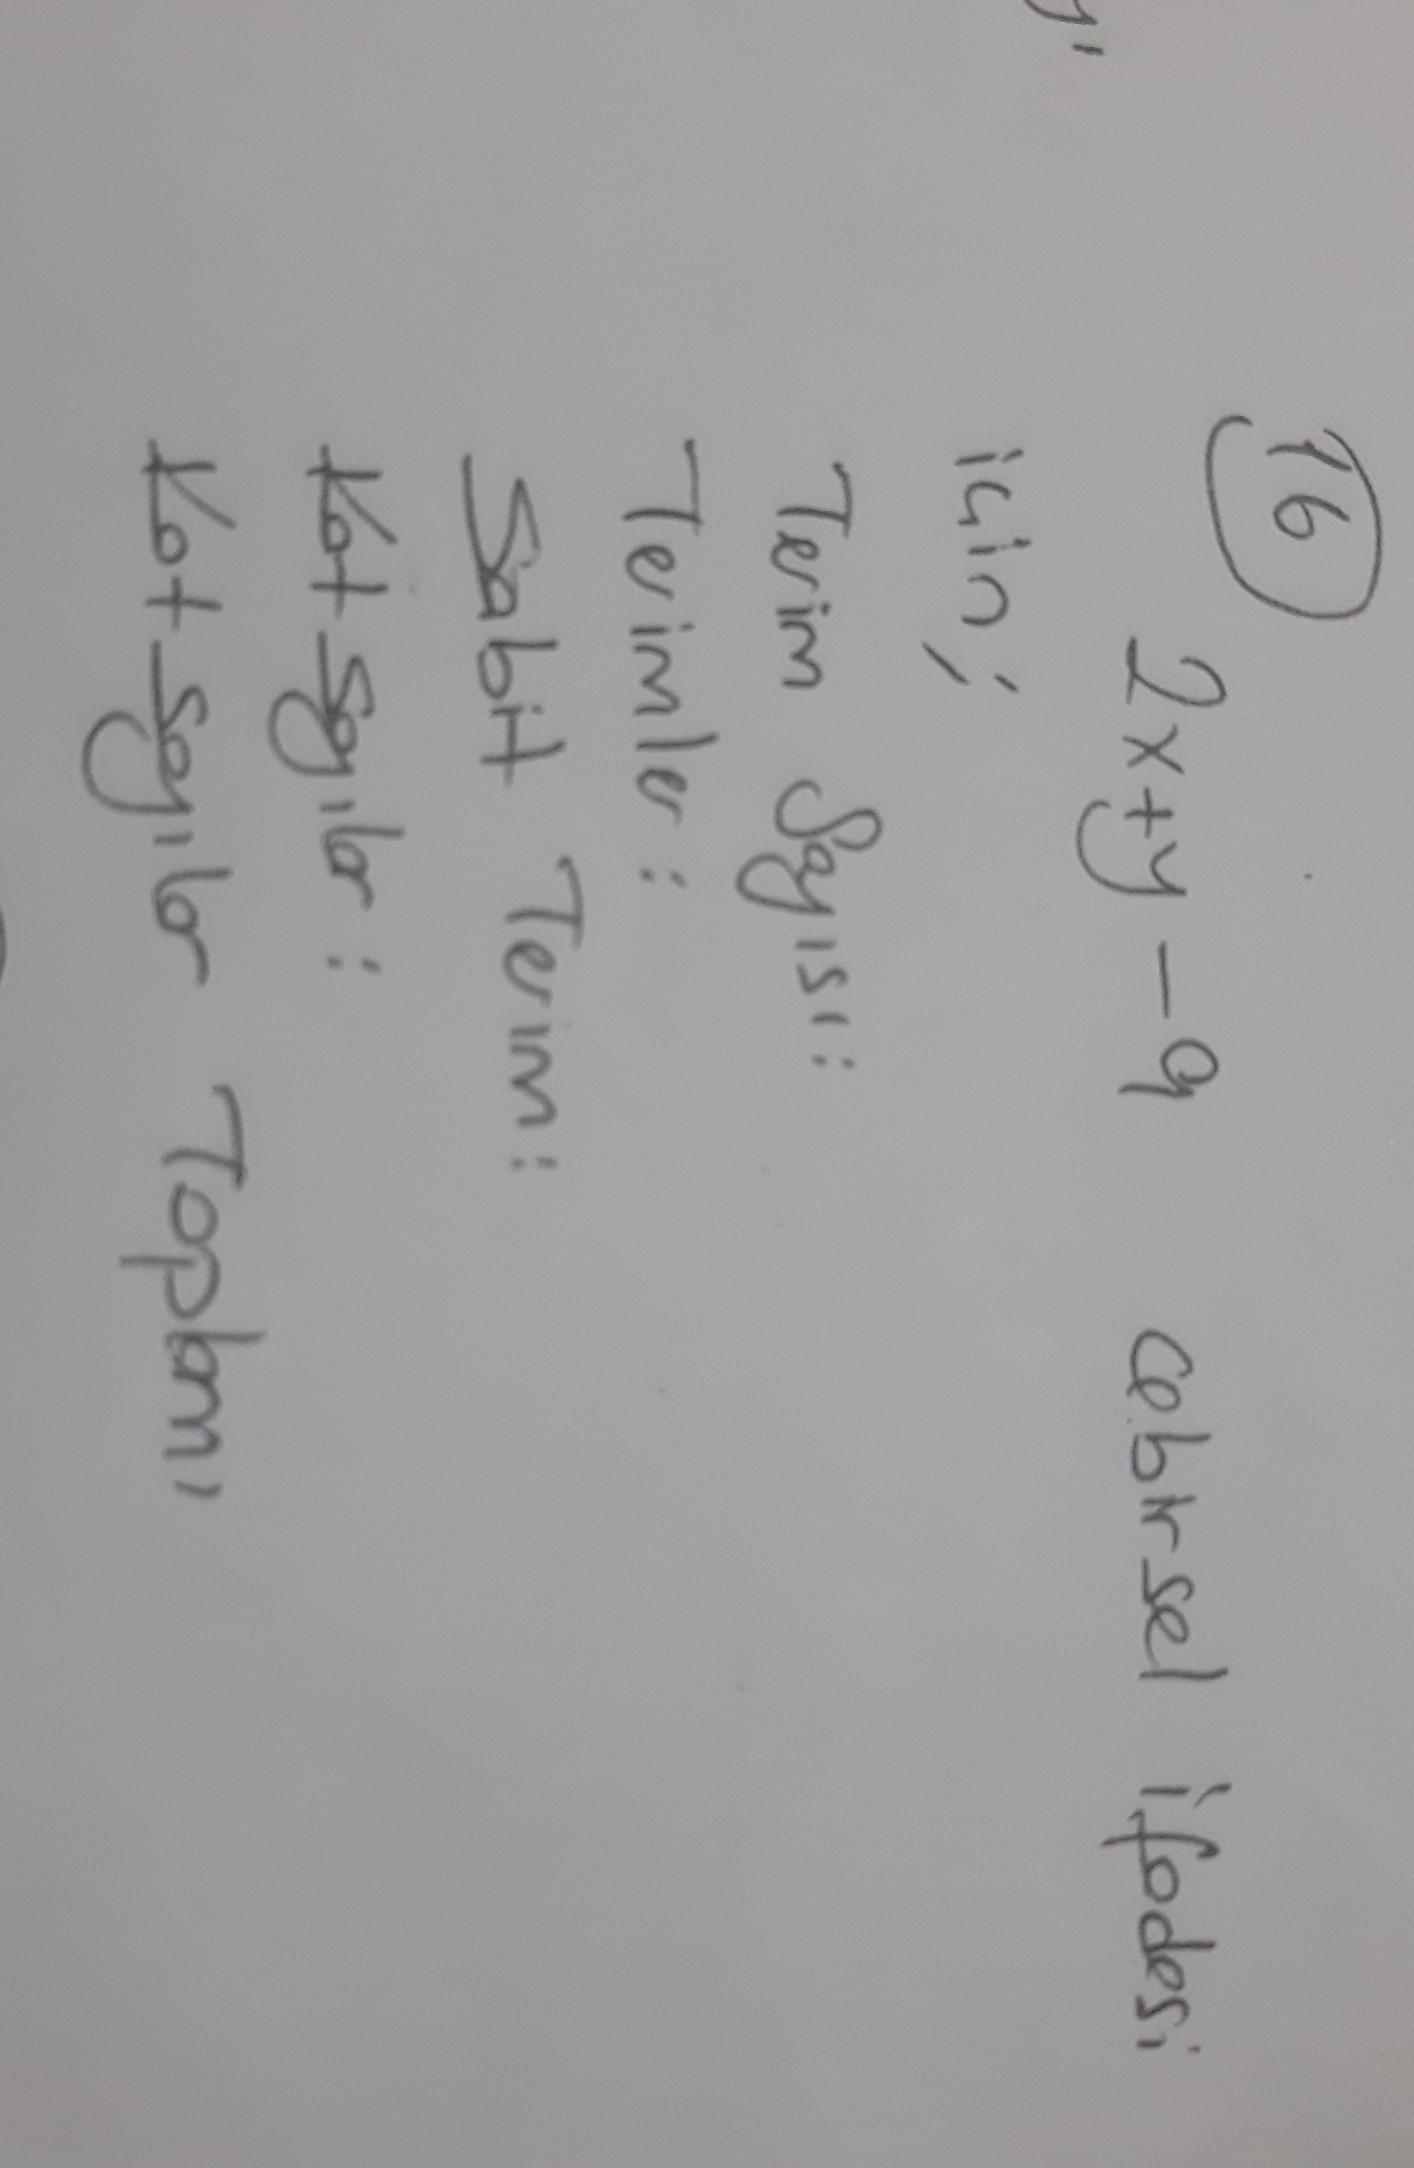 16
2x+y-9 cebirsel ifadesi
için;
Terim Sayısı:
Terimler:
Sabit Terim:
Katsayılar:
Katsayılar Toplamı